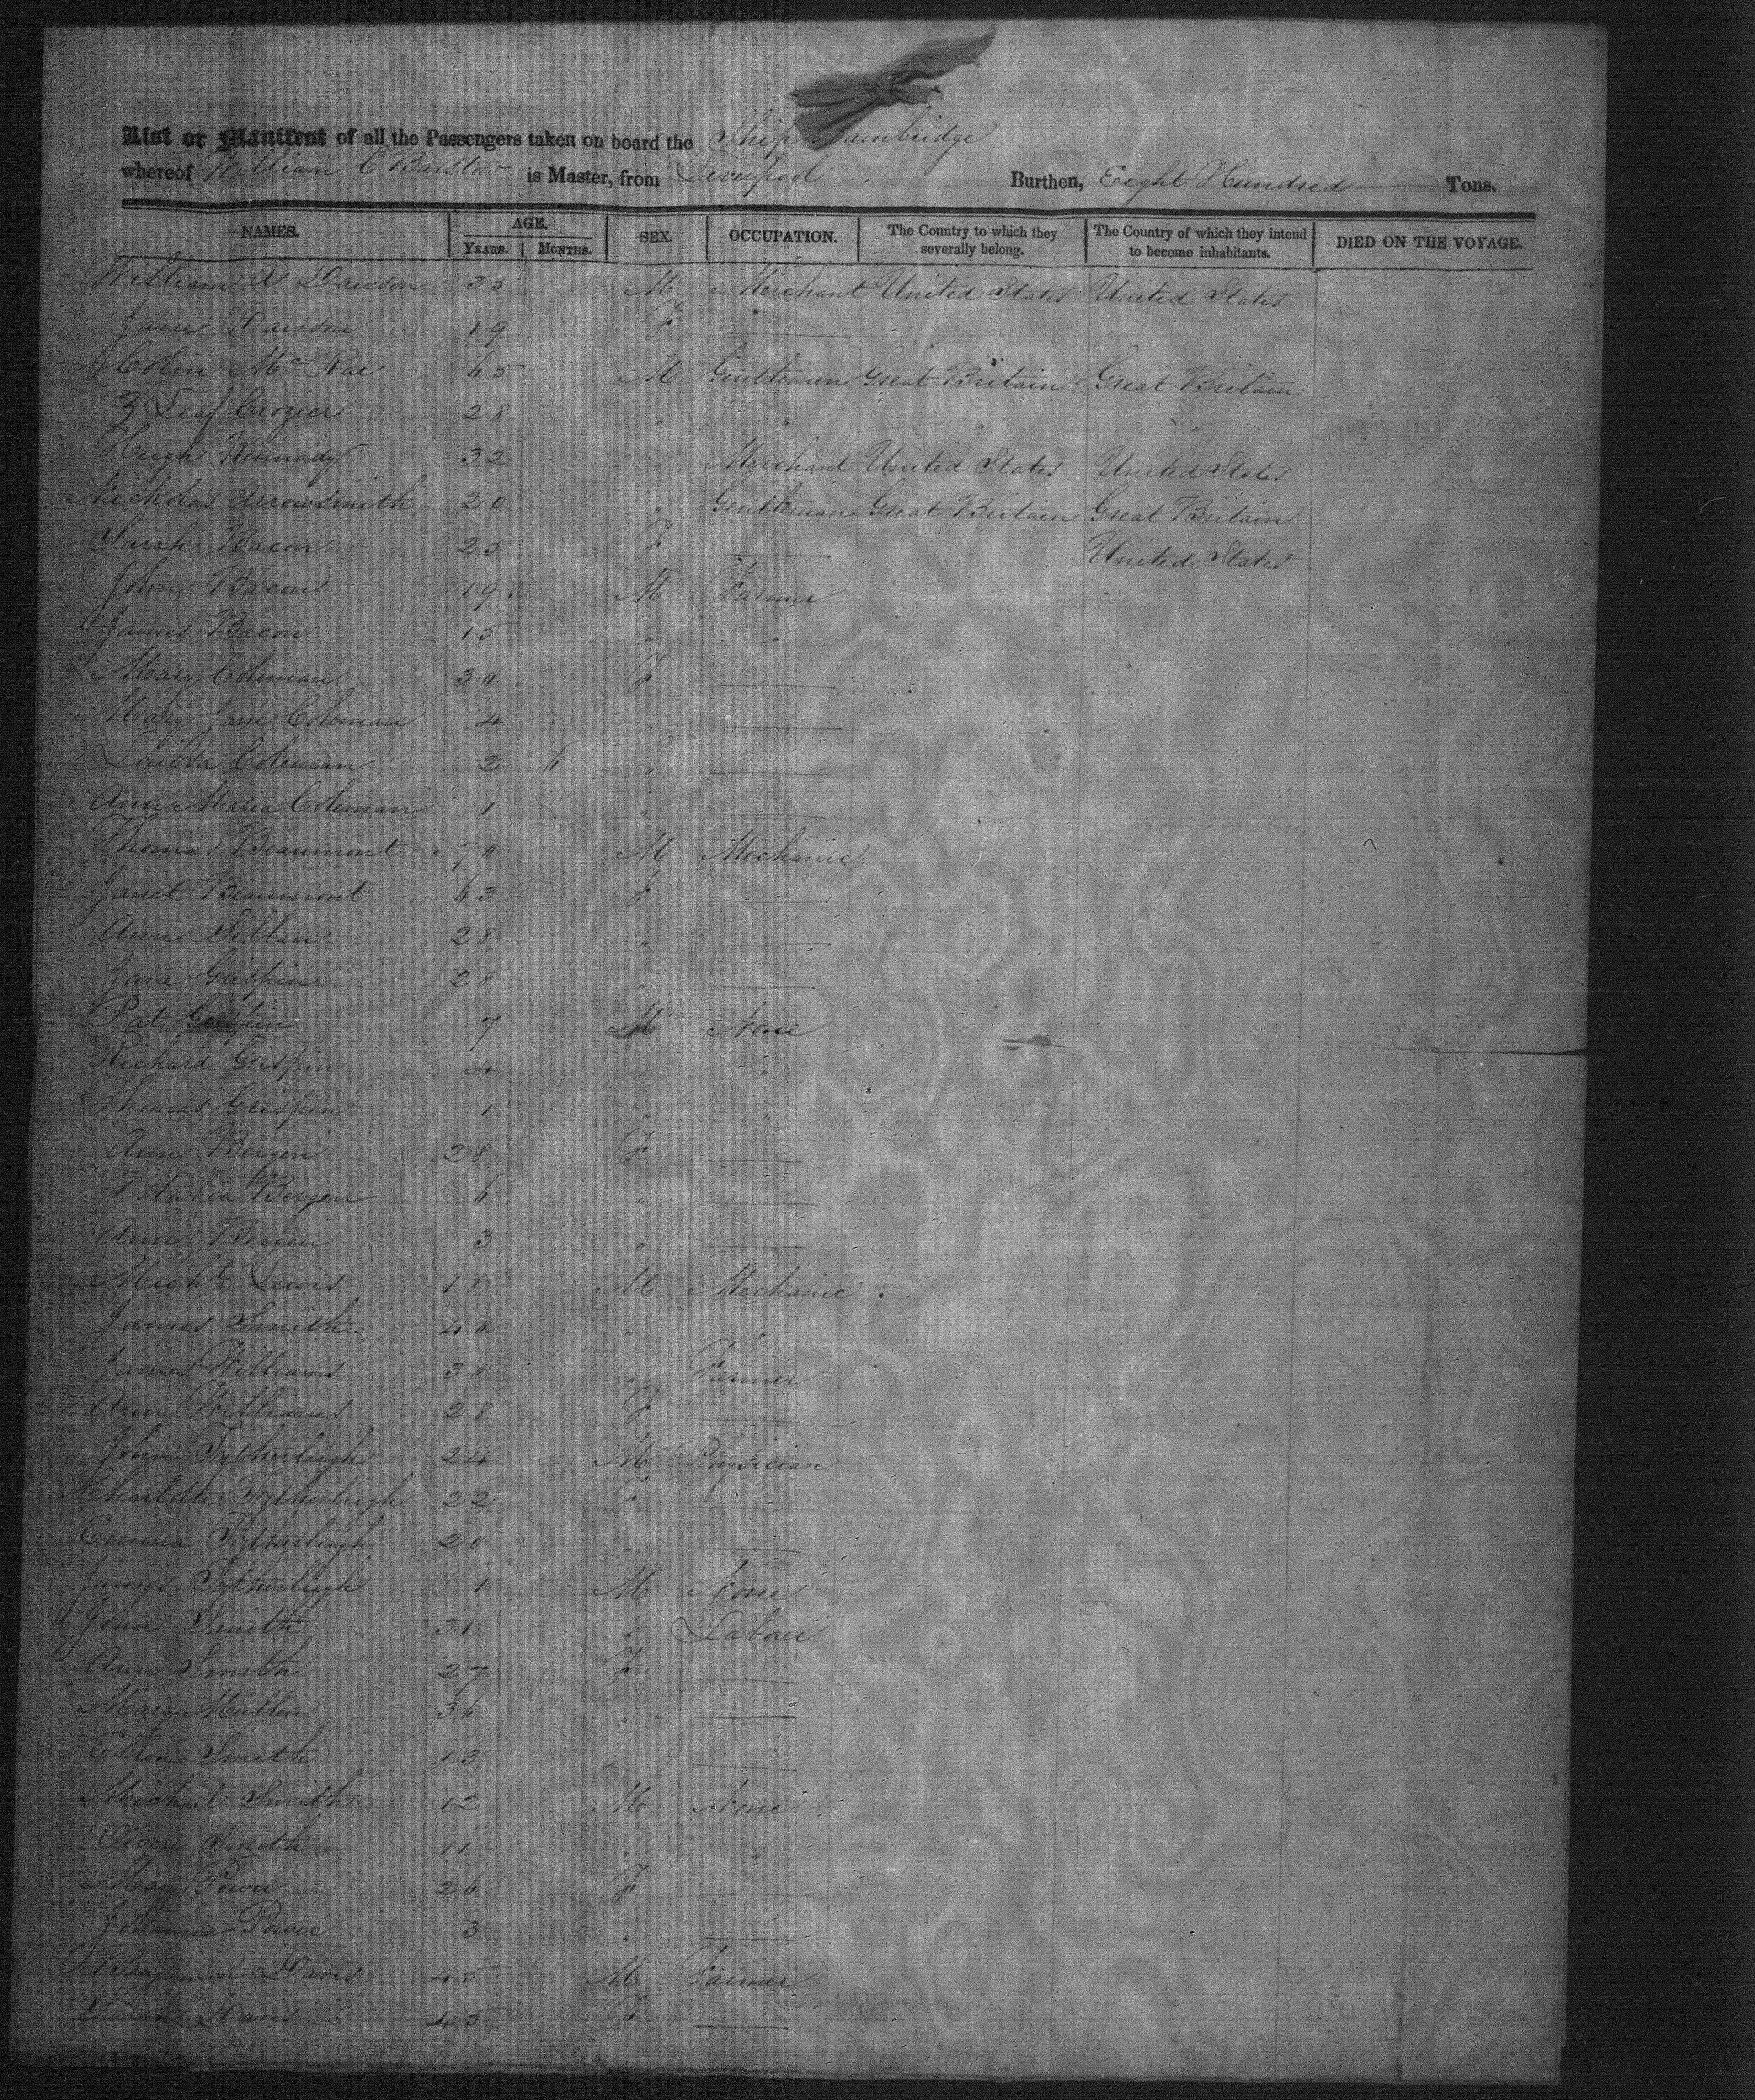 List or Manifest of all the Passengers taken on board the Ship Cambridge
whereof William C Barstow is Master, from Liverpool Burthen, Eight Hundred Tons.
NAMES. AGE. YEARS. MONTHS. SEX. OCCUPATION. The Country to which they severally belong. The Country of which they intend to become inhabitants. DIED ON THE VOYAGE.
William A Dawson 35 M Merchant United States United States
Jane Dawson 19 F
Colin McRae 65 M Gentlemen Great Britain Great Britain
Leaf Crozier 28 " " " "
Hugh Kennady 32 Merchant United States United States
Nickolas Arrowsmith 20 " Gentleman Great Britain Great Britain
Sarah Bacon 25 F United States
John Bacon 19 M Farmer
James Bacon 15 " "
Mary Coleman 30 F
Mary Jane Coleman 4 "
Louisa Coleman 2 6 "
Ann Maria Coleman 1 "
Thomas Beaumont 70 M Mechanic
Janet Beaumont 63 F
Ann Sellan 28 "
Jane Grispin 28 "
Pat Grispin 7 M None
Richard Grispin 4 " "
Thomas Grispin 1 " "
Ann Bergen 28 F
Astatia Bergen 6 "
Ann Bergen 3 "
Michl Lewis 18 M Mechanic
James Smith 40 " "
James Williams 30 " Farmer
Ann Williams 28 F
John Tytherleigh 24 M Physician
Charlotte Tytherleigh 22 F
Emma Tytherleigh 20 "
James Tytherleigh 1 M None
John Smith 31 " Laborer
Ann Smith 27 F
Mary Mullen 36 "
Ellen Smith 13 "
Michael Smith 12 M None
Owen Smith 11 " "
Mary Power 26 F
Johanna Power 3 "
Benjamin Davis 45 M Farmer
Sarah Davis 45 F